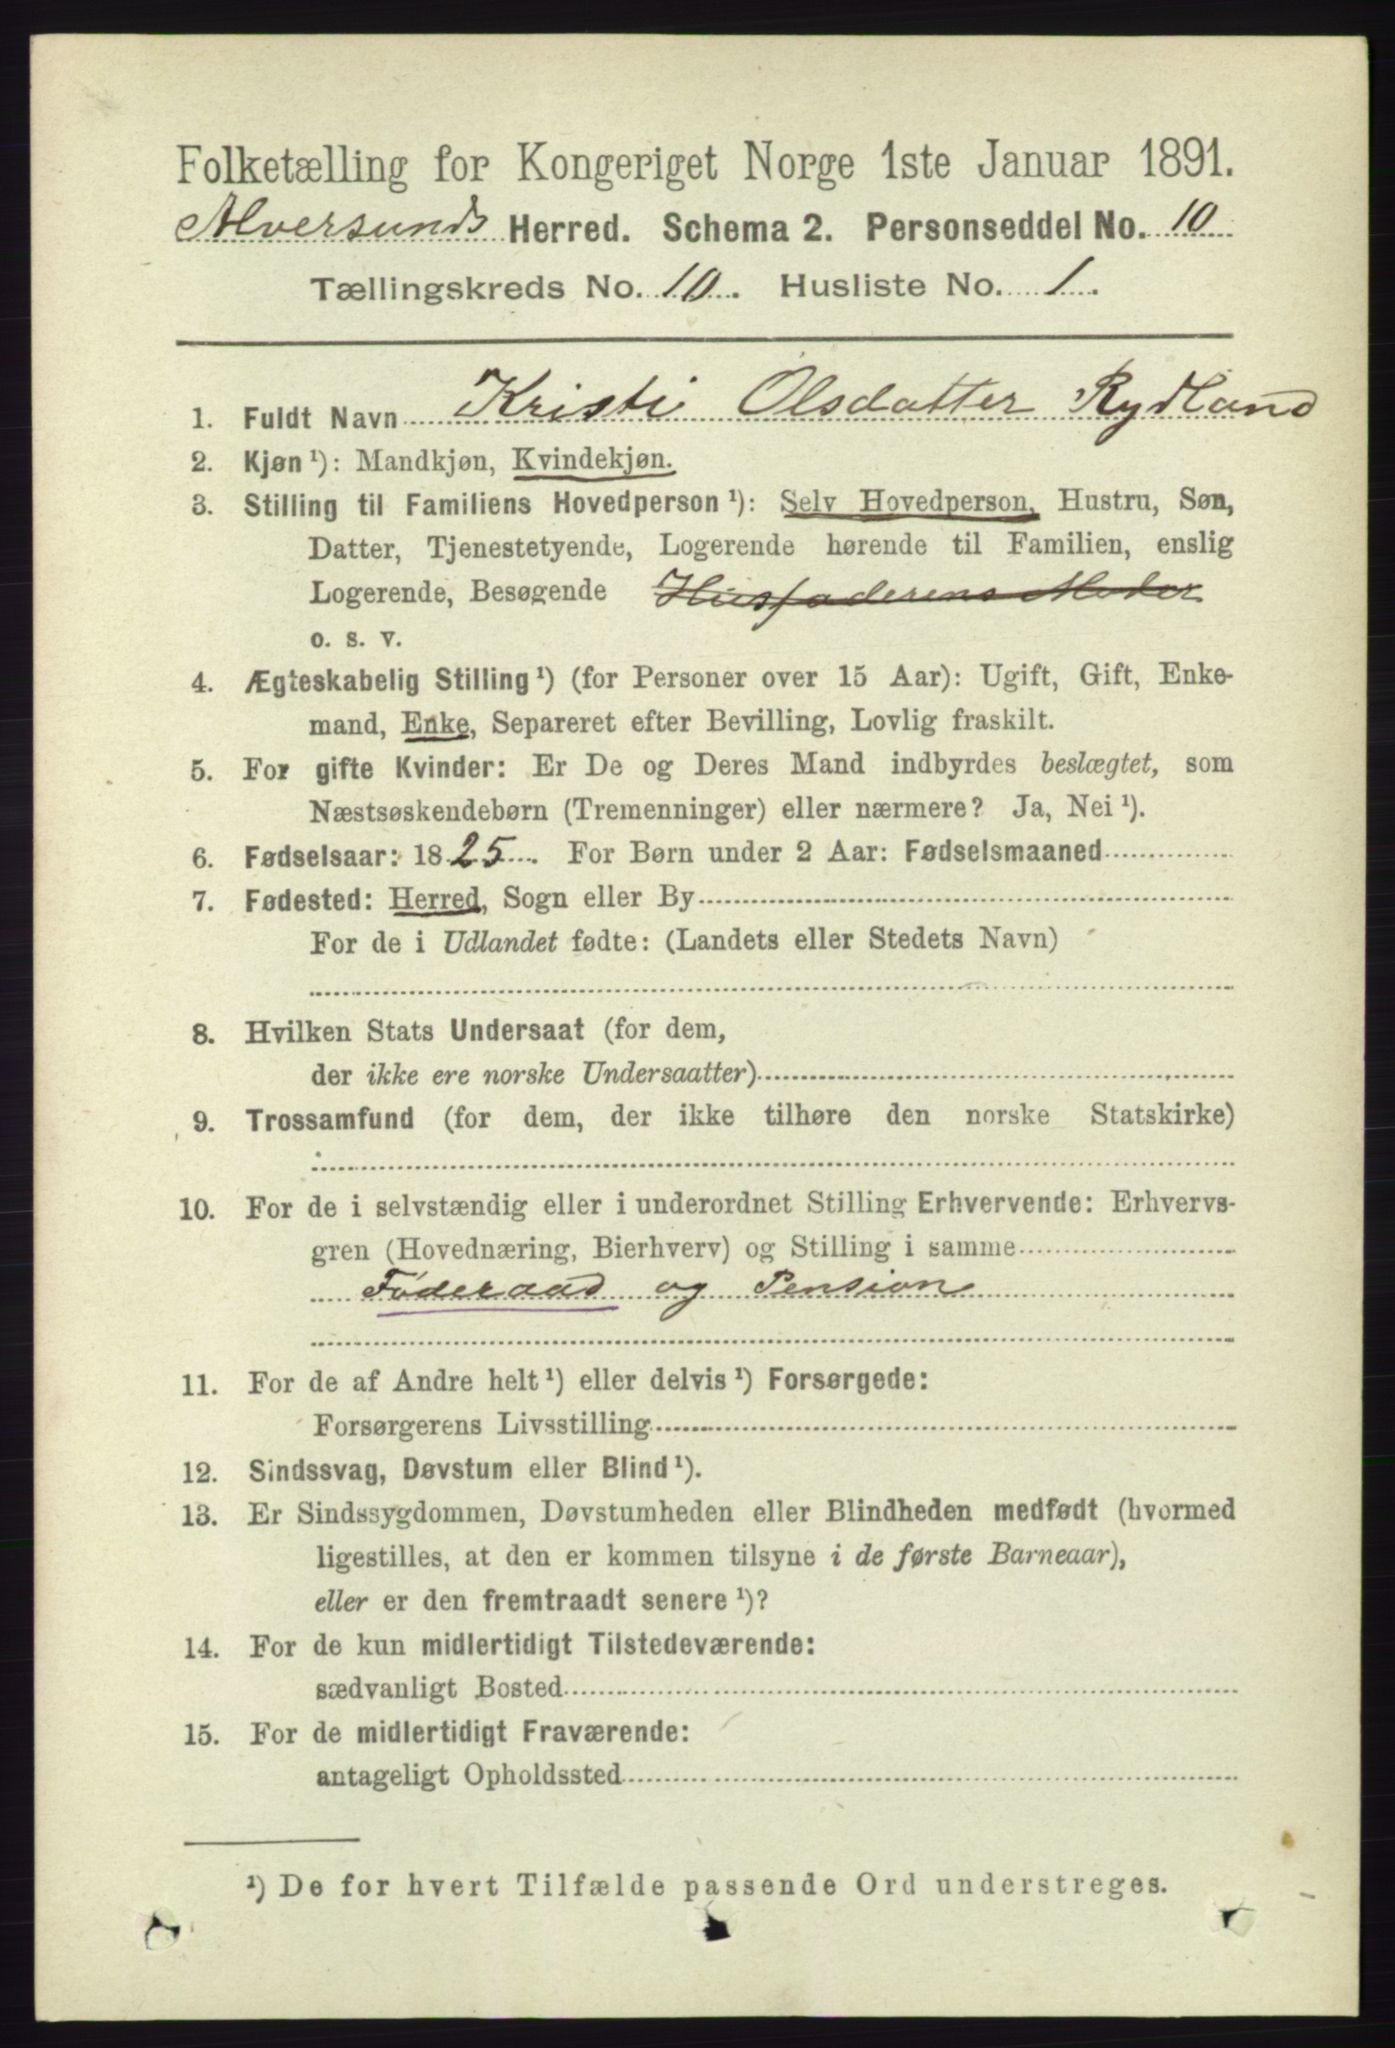 Folketælling for Kongeriget Norge 1ste Januar 1891.
Alversunds Herred. Schema 2. Personseddel No. 10
Tællingskreds No. 10. Husliste No. 1.
1. Fuldt Navn Kristi Olsdatter Rydland
2. Kjøn ¹): Mandkjøn, Kvindekjøn.
3. Stilling til Familiens Hovedperson ¹): Selv Hovedperson, Hustru, Søn,
Datter, Tjenestetyende, Logerende hørende til Familien, enslig
Logerende, Besøgende Husfaderens Moder
o. s. v.
4. Ægteskabelig Stilling ¹) (for Personer over 15 Aar): Ugift, Gift, Enke-
mand, Enke, Separeret efter Bevilling, Lovlig fraskilt.
5. For gifte Kvinder: Er De og Deres Mand indbyrdes beslægtet, som
Næstsøskendebørn (Tremenninger) eller nærmere? Ja, Nei ¹).
6. Fødselsaar: 1825. For Børn under 2 Aar: Fødselsmaaned
7. Fødested: Herred, Sogn eller By
For de i Udlandet fødte: (Landets eller Stedets Navn)
8. Hvilken Stats Undersaat (for dem,
der ikke ere norske Undersaatter)
9. Trossamfund (for dem, der ikke tilhøre den norske Statskirke)
10. For de i selvstændig eller i underordnet Stilling Erhvervende: Erhvervs-
gren (Hovednæring, Bierhverv) og Stilling i samme
Föderaad og Pension
11. For de af Andre helt ¹) eller delvis ¹) Forsørgede:
Forsørgerens Livsstilling
12. Sindssvag, Døvstum eller Blind ¹).
13. Er Sindssygdommen, Døvstumheden eller Blindheden medfødt (hvormed
ligestilles, at den er kommen tilsyne i de første Barneaar),
eller er den fremtraadt senere ¹)?
14. For de kun midlertidigt Tilstedeværende:
sædvanligt Bosted
15. For de midlertidigt Fraværende:
antageligt Opholdssted
¹) De for hvert Tilfælde passende Ord understreges.